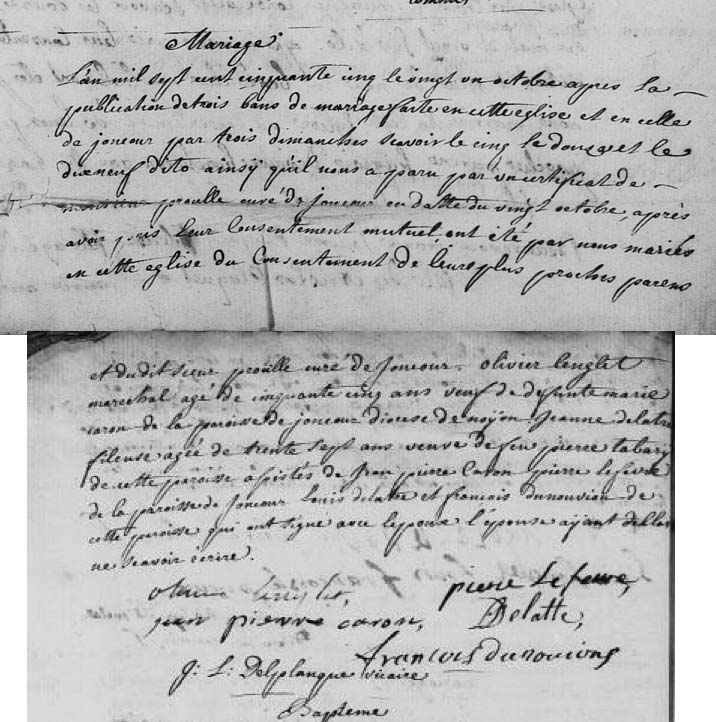 Mariage
L'an mil sept cent cinquante cinq le vingt un octobre apres la
publication de trois bans de mariage faite en cette eglise et en celle
de joncour par trois dimanches scavoir le cinq le douze et le
dixneuf dito ainsy qu'il nous a paru par un certificat de
monsieur proille curé de joncour en datte du vingt octobre, après
avoir pris leur Consentement mutuel, ont été par nous mariés
en cette eglise du Consentement de leurs plus proches parens
et dudit sieur proille curé de Joncour. olivier lenglet
marechal agé de cinquante cinq ans veuf de defunte marie
caron de la paroisse de joncour diocese de noyon. Jeanne delatre
fileuse agée de trente sept ans veuve de feu pierre tabary
de cette paroisse assistés de Jean pierre Caron pierre lefevre
de la paroisse de Joncour Louis delatre et francois dunouvion de
cette paroisse qui ont signe avec lepoux l'épouse ayant
ne scavoir écrire.
pierre Lefevre,
jean pierre caron, Delatte,
francois dunouvions
J: L: Delplanque vicaire
Bapteme